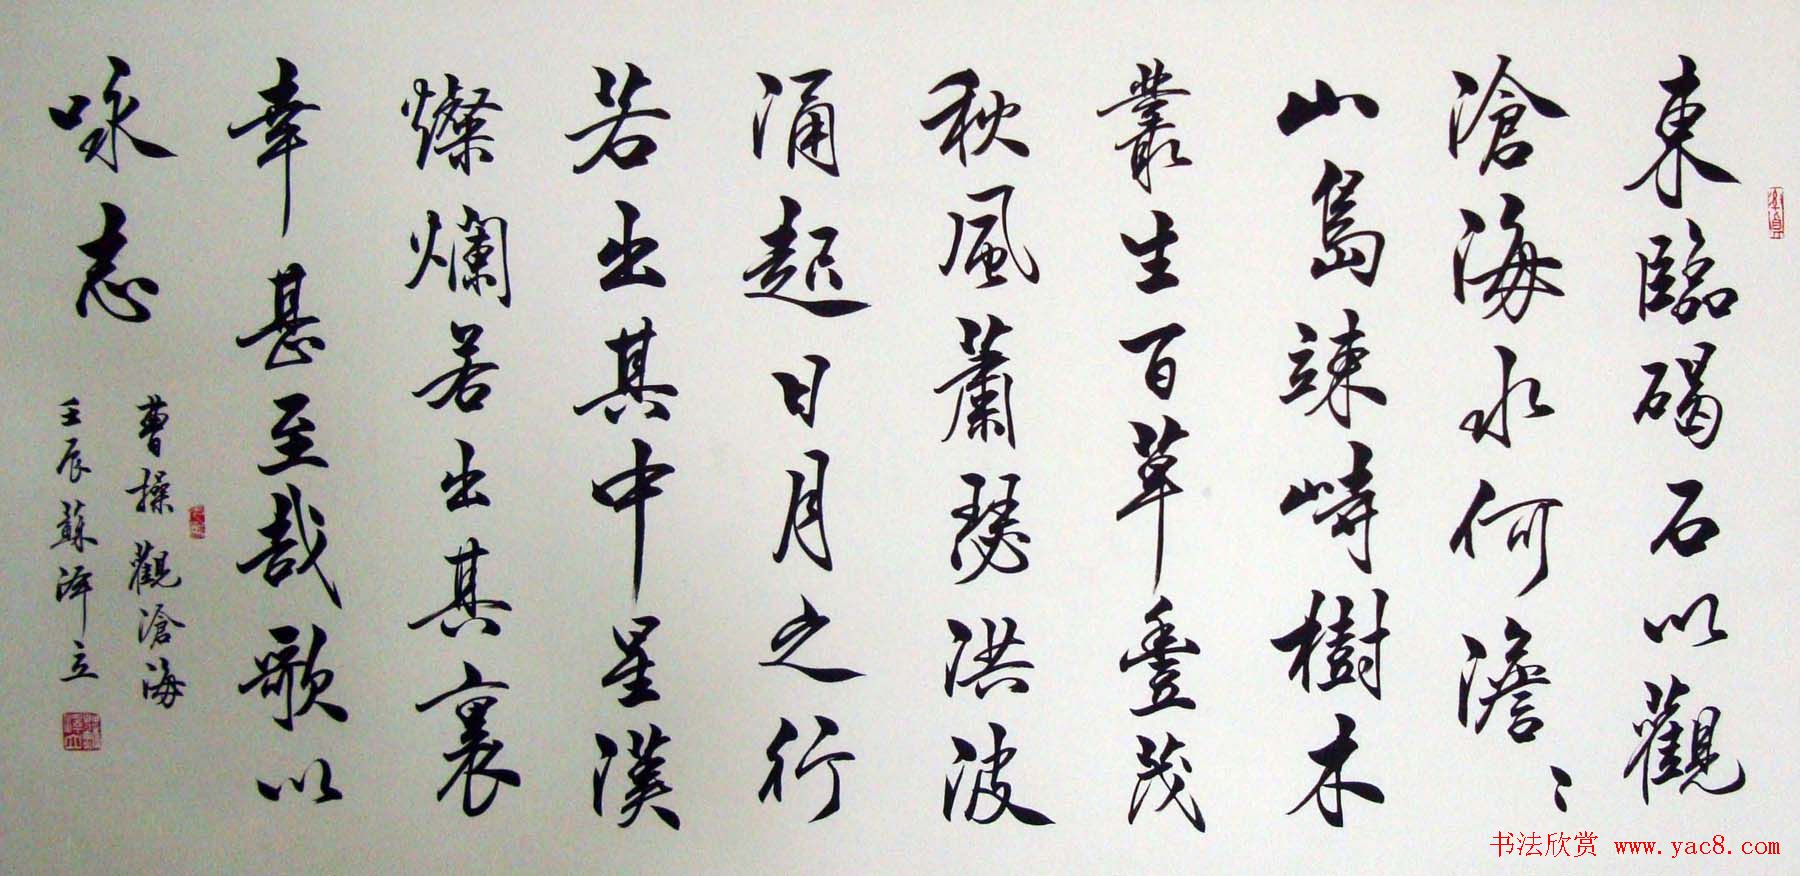 東臨碣石以觀
滄海水何澹〻
山島竦峙樹木
叢生百草豐茂
秋風蕭瑟洪波
涌起日月之行
若出其中星漢
燦爛若出其裏
幸甚至哉歌以
咏志
曹操觀滄海
壬辰蘇澤立
书法欣赏 www.yac8.com